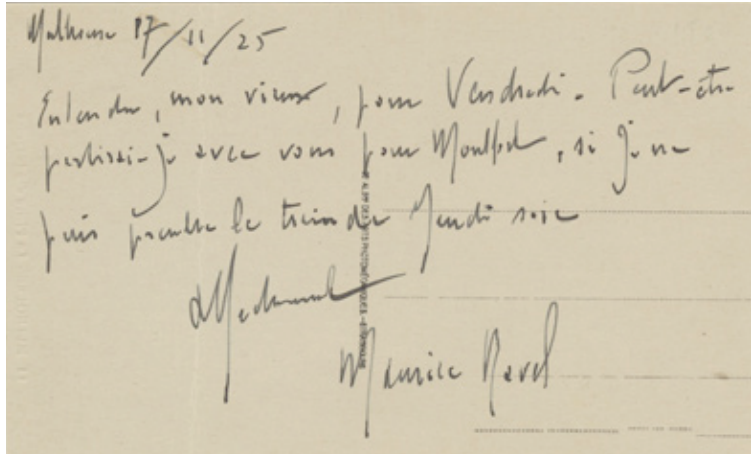 Mulhouse 17/11/25
Entendu, mon vieux, pour Vendredi. Peut-être
partirai-je avec vous pour Montfort, si je ne
puis prendre le train de Jeudi soir
Affectueusement
Maurice Ravel